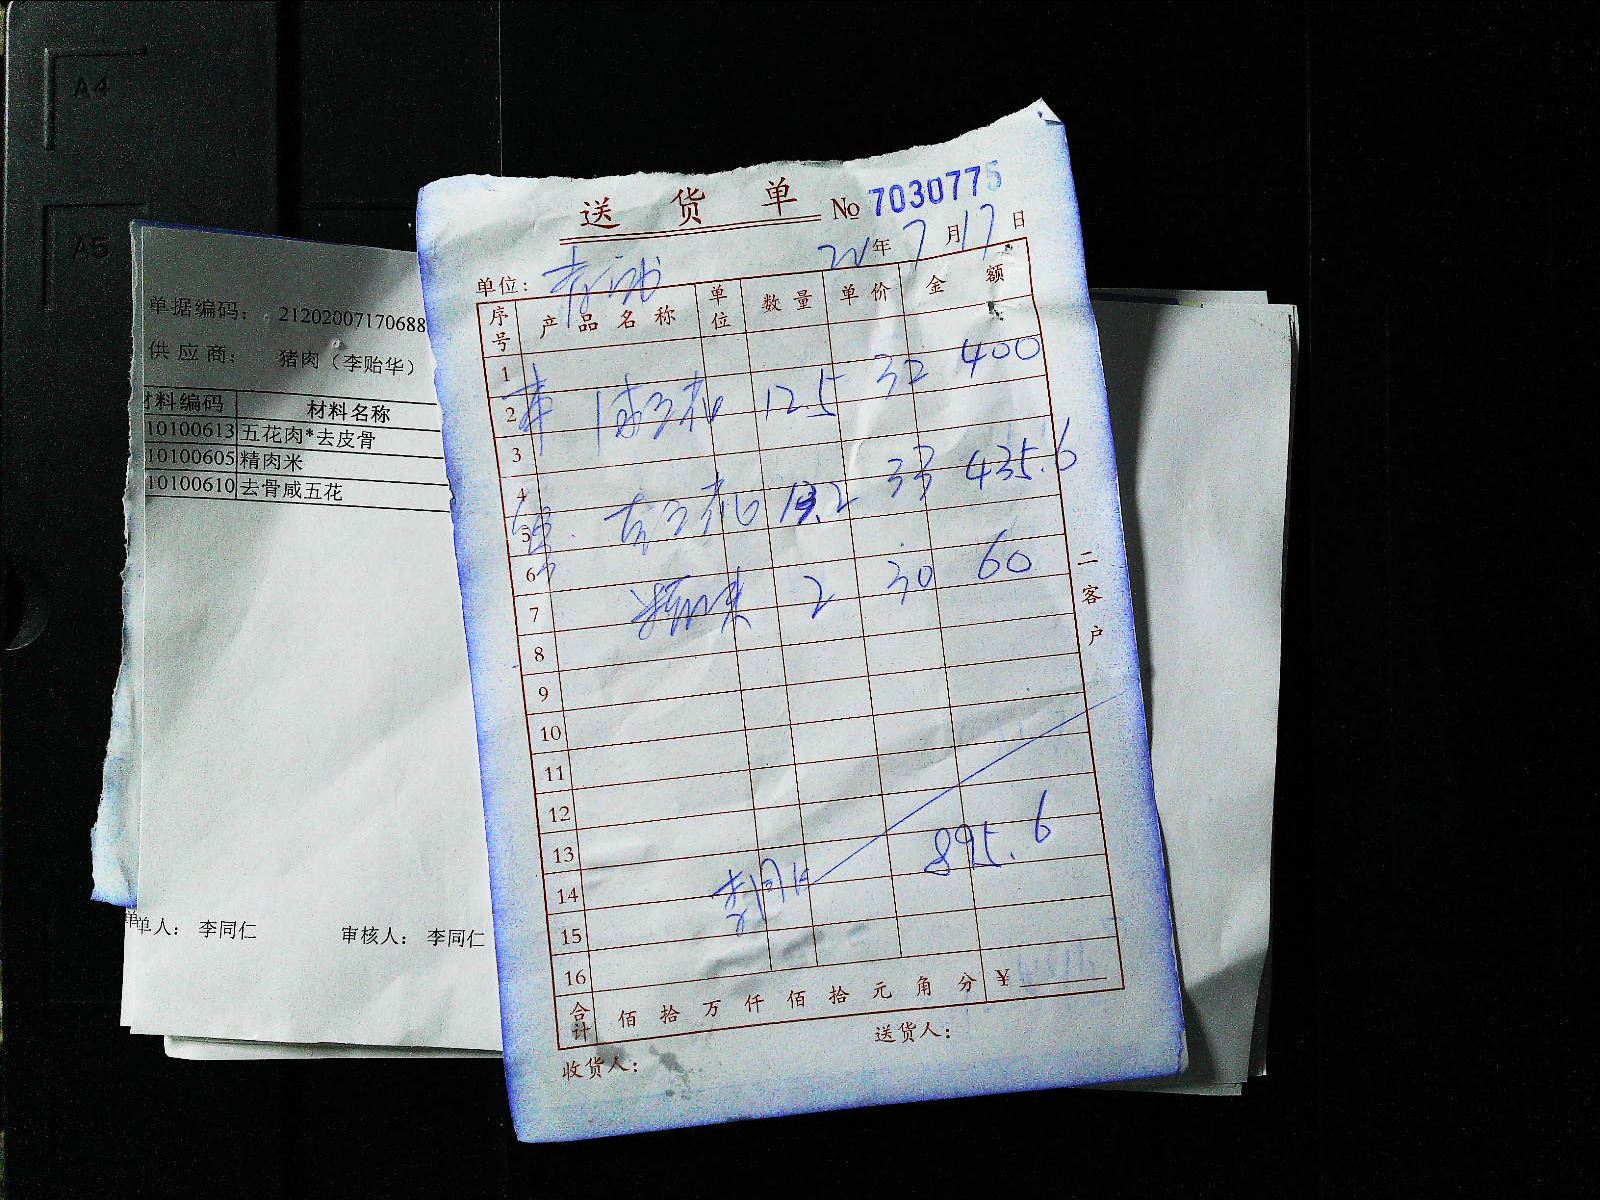 A4
A5
单据编码： 21202007170688
供应商： 猪肉（李贻华）
材料编码 材料名称
10100613 五花肉*去皮骨
10100605 精肉米
10100610 去骨咸五花
单人： 李同仁 审核人： 李同仁
送货单 No 7030775
年 7 月 17 日
单位：
序号 产品名称 单位 数量 单价 金额
1
2 咸五花 12.5 32 400
3
4
5 去五花 13.2 33 435.6
6
7 精肉米 2 30 60
8
9
10
11
12
13
14 895.6
15
16
合计 佰 拾 万 仟 佰 拾 元 角 分 ¥
收货人： 送货人：
二客户